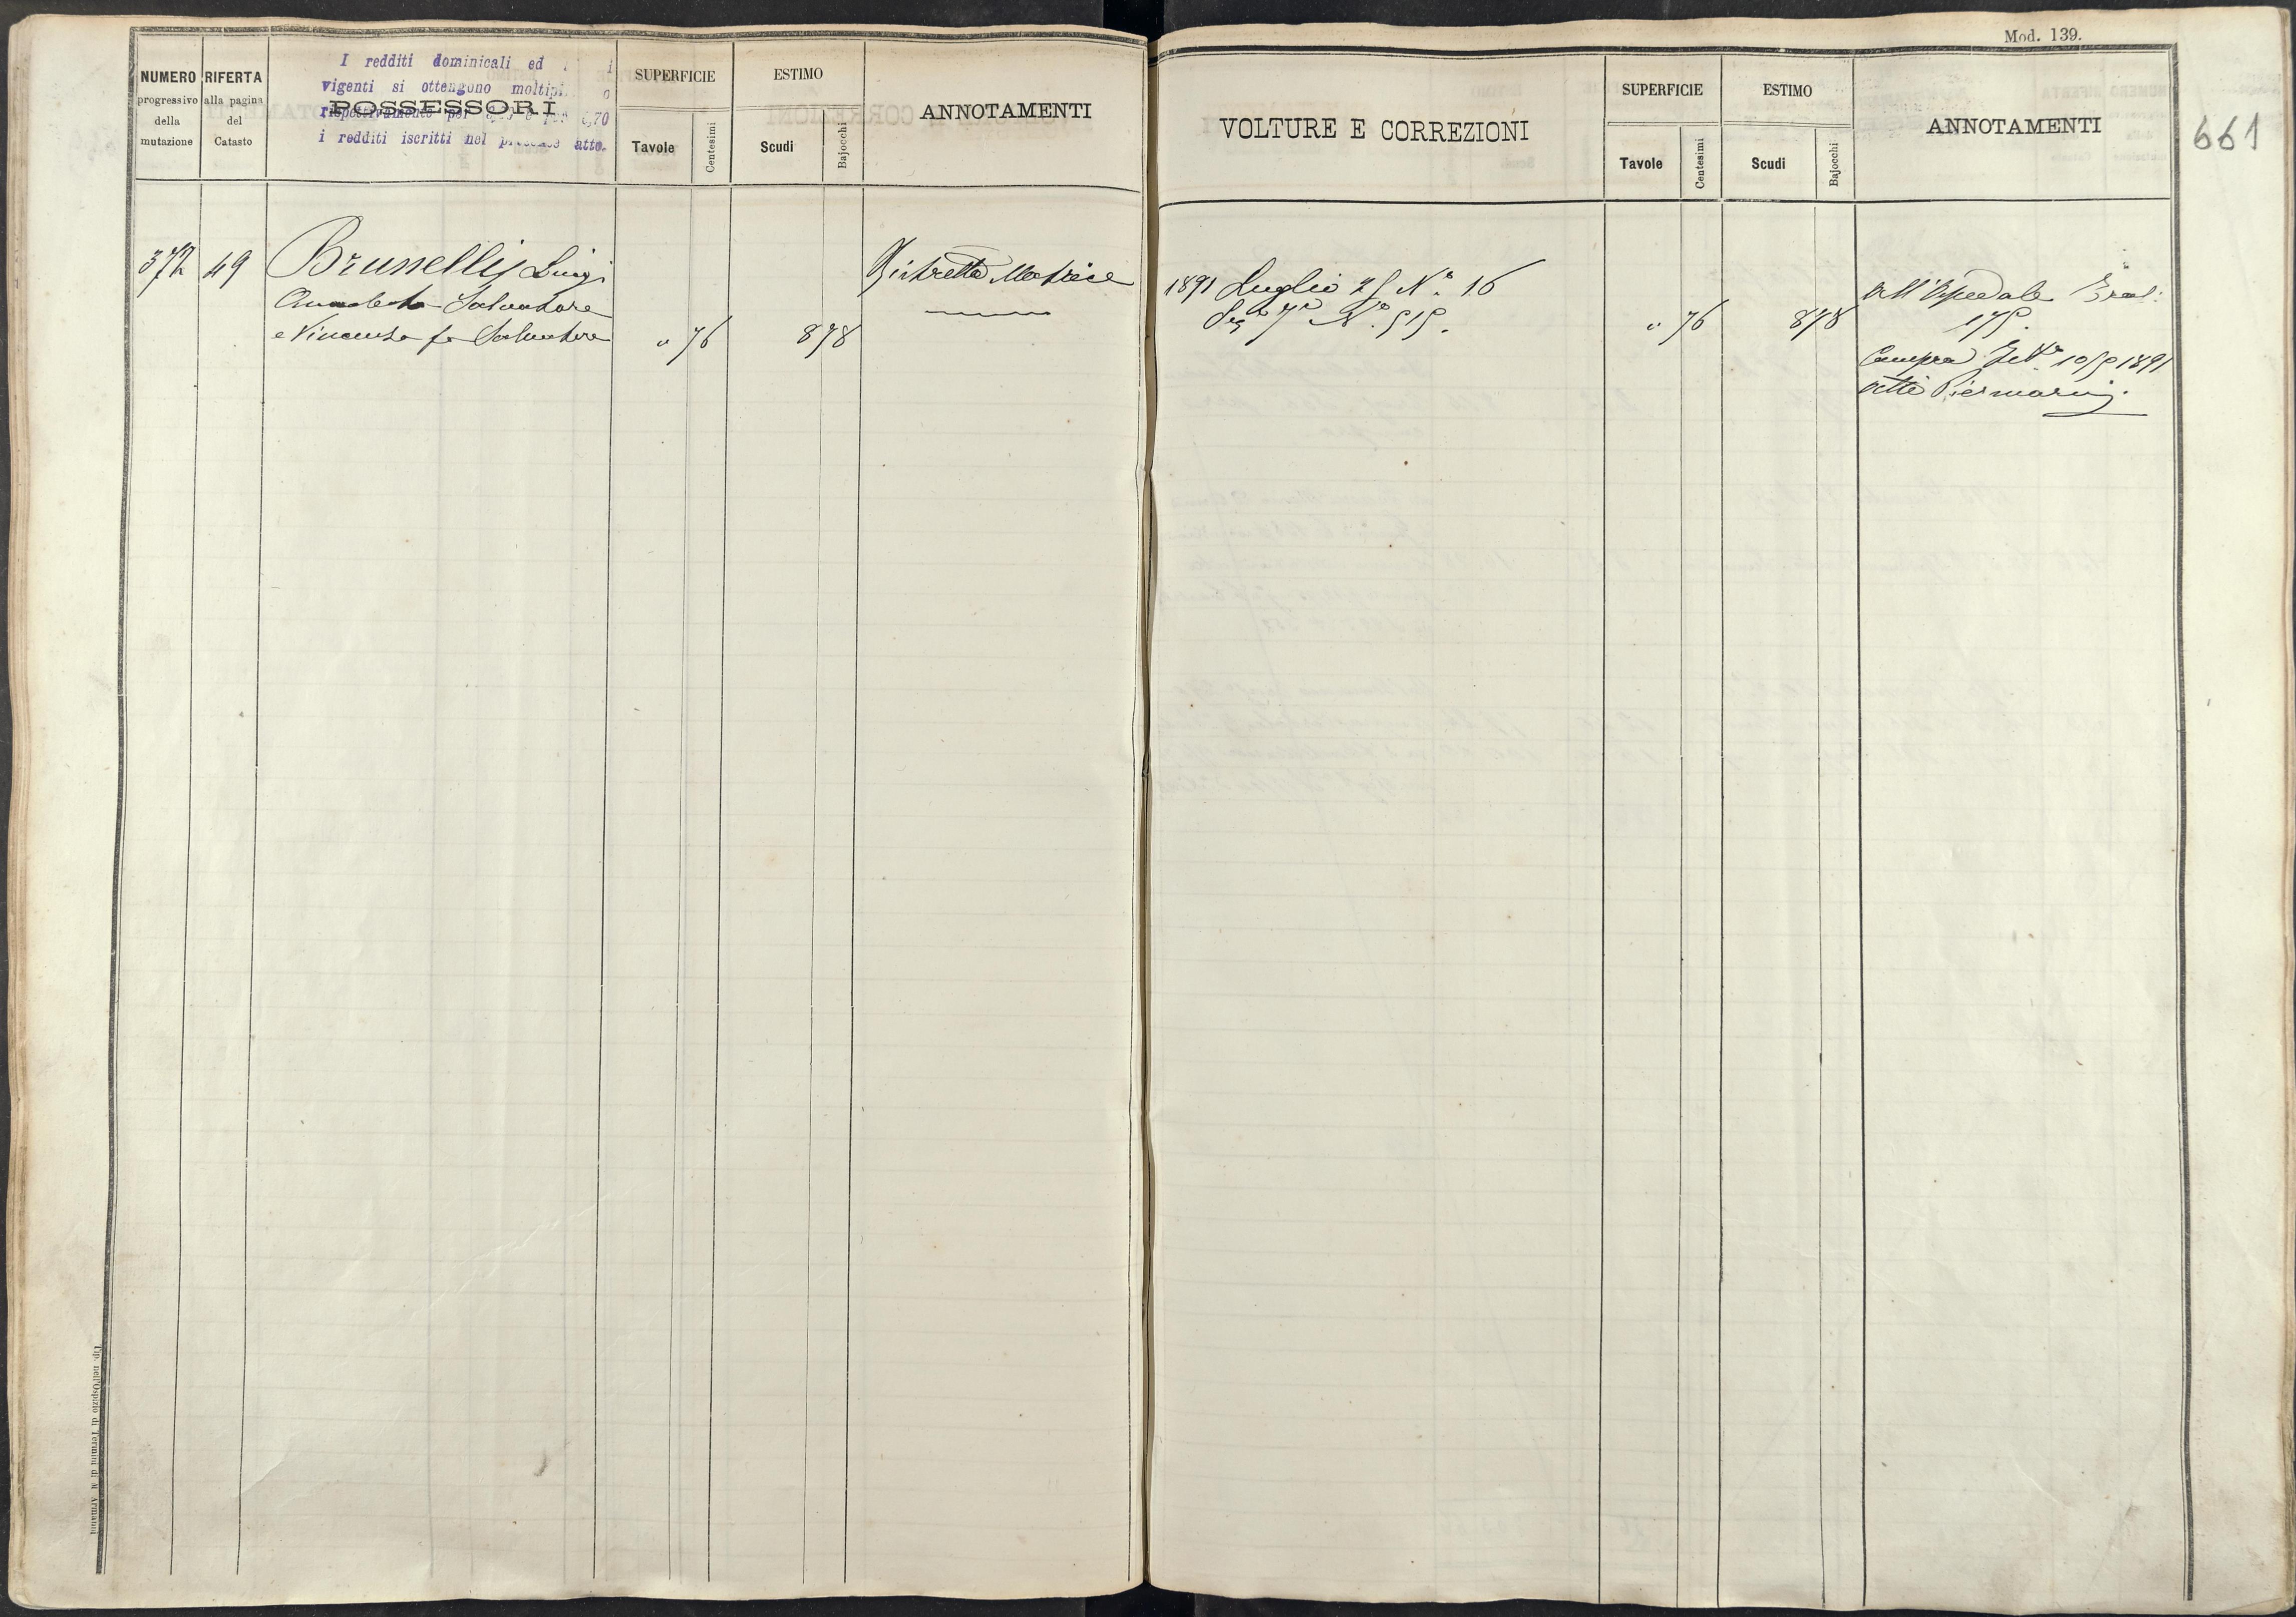 Mod. 139.
661
NUMERO
progressivo
della
mutazione
RIFERTA
alla pagina
del
Catasto
I redditi dominicali ed
vigenti si ottengono moltipl
POSSESSORI
rispettivamente per
i redditi iscritti nel presente atto.
SUPERFICIE
Tavole
Centesimi
ESTIMO
Scudi
Bajocchi
ANNOTAMENTI
VOLTURE E CORREZIONI
SUPERFICIE
Tavole
Centesimi
ESTIMO
Scudi
Bajocchi
ANNOTAMENTI
372
49
Brunelli Luigi
Salvatore
e Vincenzo fu Salvatore
" 76
8 78
Ristretto Matrice
1891 Luglio 25 N.º 16
Seg 7º N.º 515.
" 76
8 78
All'Ospedale
175.
Compra 1055 1891
Atti Piermarini.
Tip. nell'Ospizio di Termini di M. Armanni